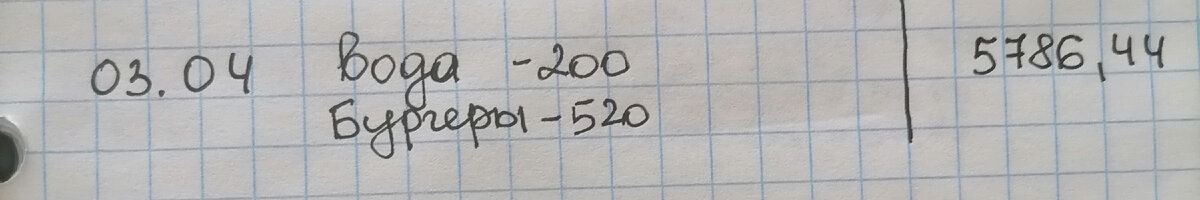 03.04 Вода -200 5786,44
Бургеры - 520